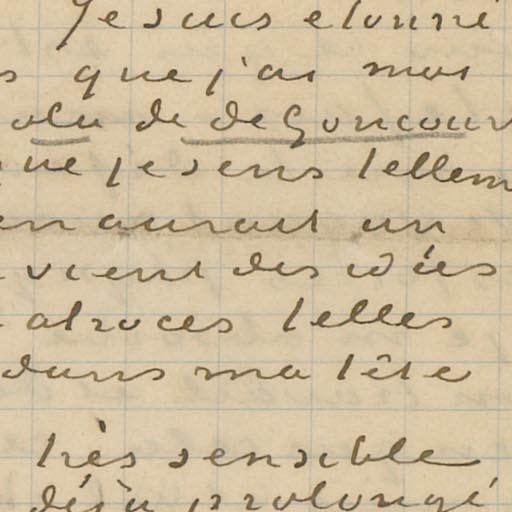 Je suis etonné
s que j'ai moi
olu de de Goncour
ue je sens tellem
en aurait un
vient des idées
atroces telles
dans ma tête
très sensible
déjà prolongé